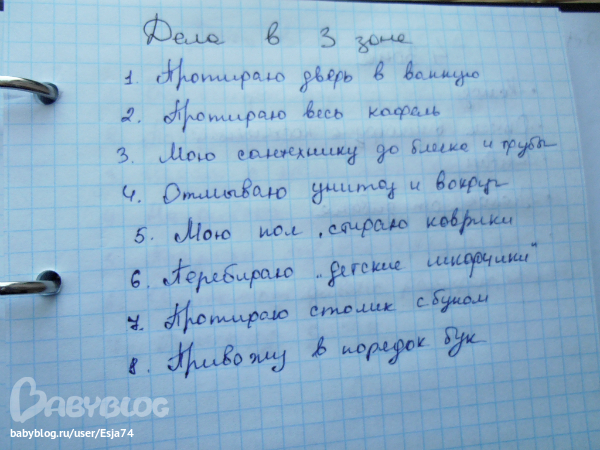 Дела в 3 зоне
1. Протираю дверь в ванную
2. Протираю весь кафель
3. Мою сантехнику до блеска и трубы
4. Отмываю унитаз и вокруг
5. Мою пол, стираю коврики
6. Перебираю „детские шкафчики"
7. Протираю столик с буком
8. Привожу в порядок бук
BABYBLOG
babyblog.ru/user/Esja74